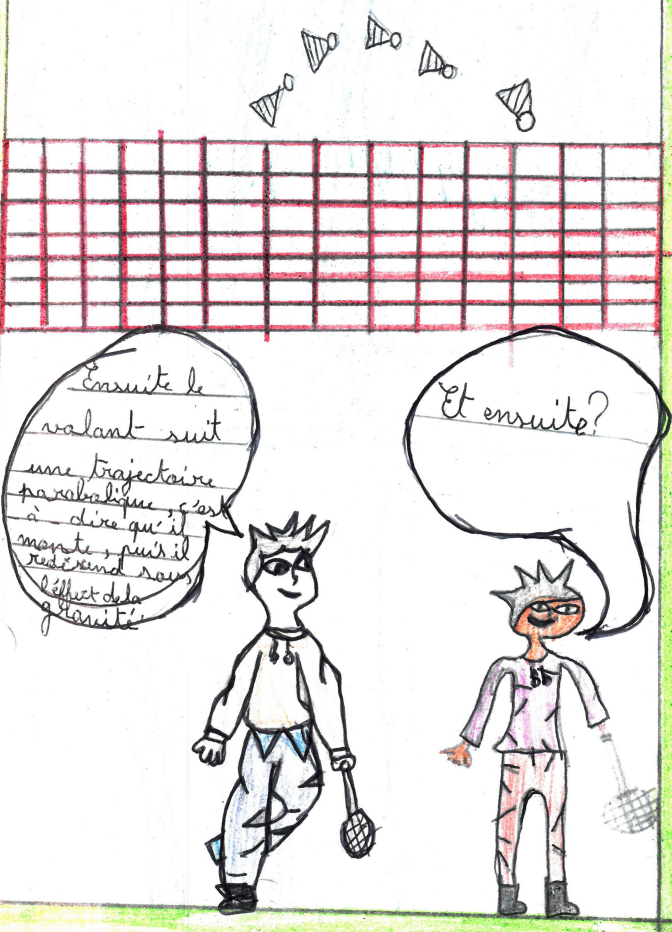 Ensuite le
volant suit
une trajectoire
parabolique, c'est
à - dire qu'il
monte, puis il
redésend sous
l'éffect de la
gravité.
Et ensuite?